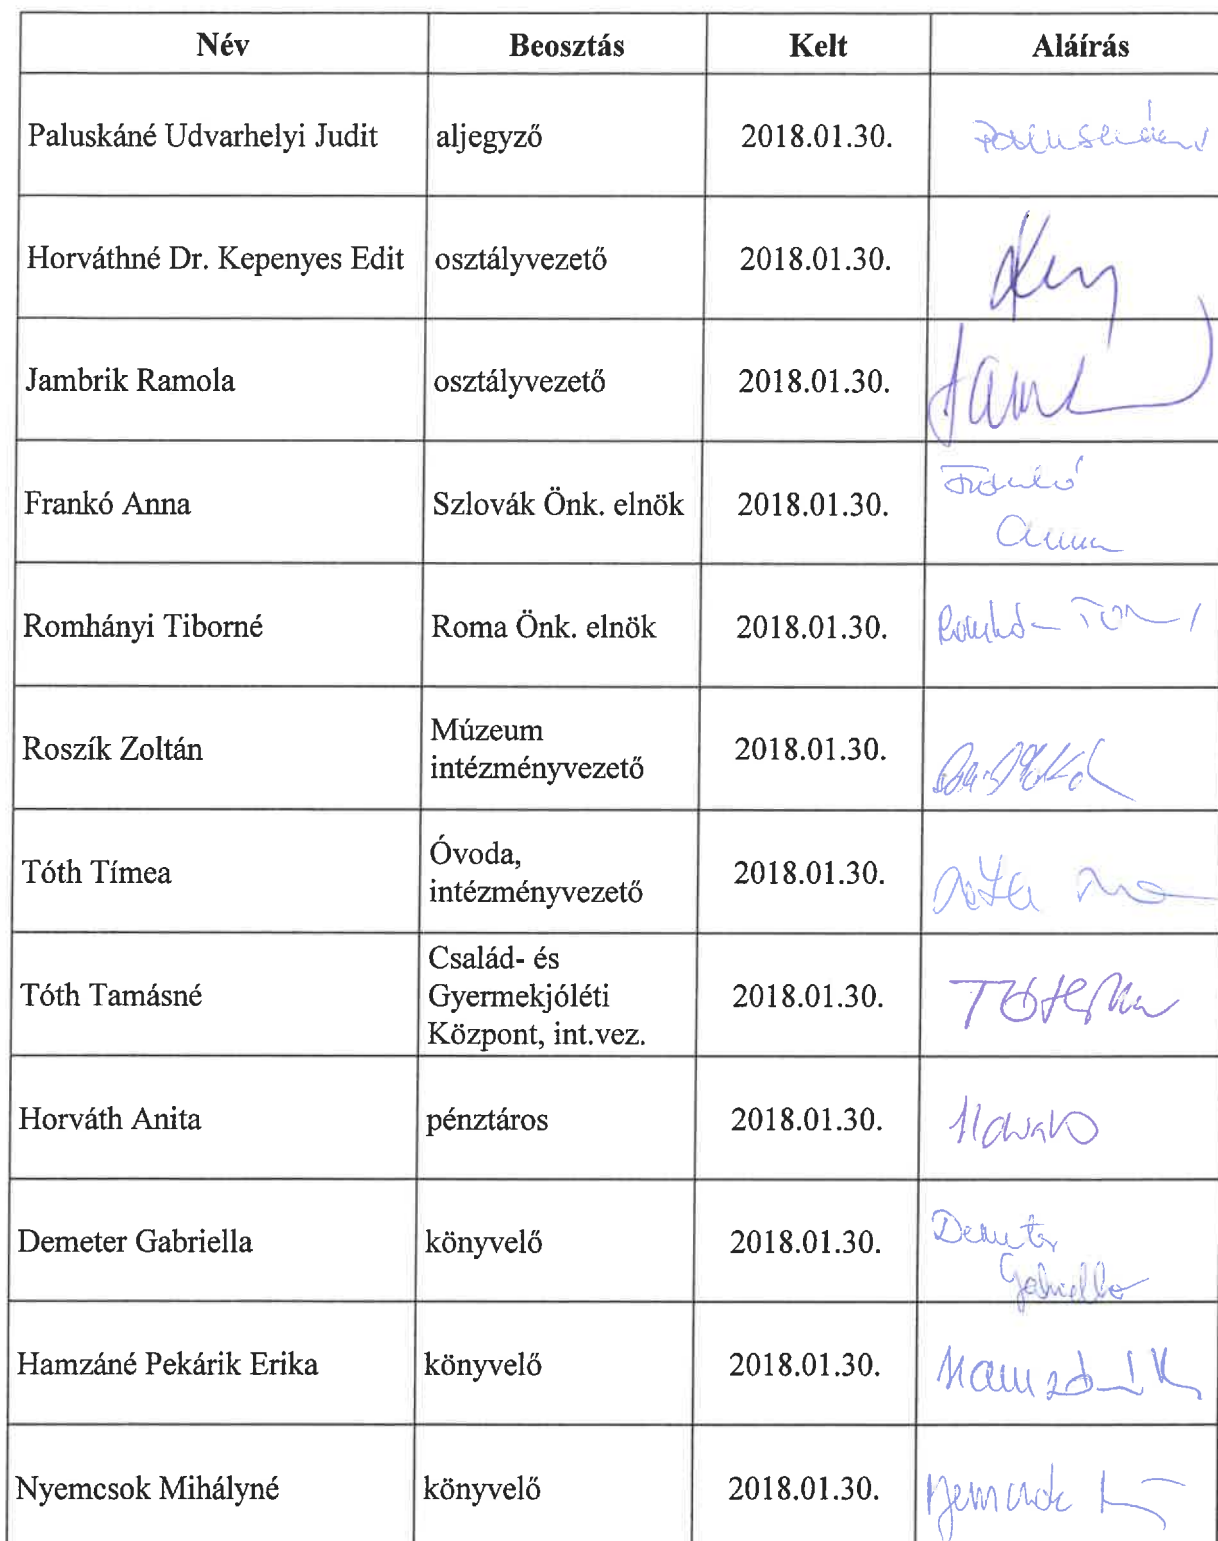 Név Beosztás Kelt Aláírás
Paluskáné Udvarhelyi Judit aljegyző 2018.01.30.
Horváthné Dr. Kepenyes Edit osztályvezető 2018.01.30.
Jambrik Ramola osztályvezető 2018.01.30.
Frankó Anna Szlovák Önk. elnök 2018.01.30. Frankó
Anna
Romhányi Tiborné Roma Önk. elnök 2018.01.30.
Roszík Zoltán Múzeum
intézményvezető 2018.01.30.
Tóth Tímea Óvoda,
intézményvezető 2018.01.30.
Tóth Tamásné Család- és
Gyermekjóléti
Központ, int.vez. 2018.01.30.
Horváth Anita pénztáros 2018.01.30.
Demeter Gabriella könyvelő 2018.01.30. Demeter
Gabriella
Hamzáné Pekárik Erika könyvelő 2018.01.30.
Nyemcsok Mihályné könyvelő 2018.01.30.